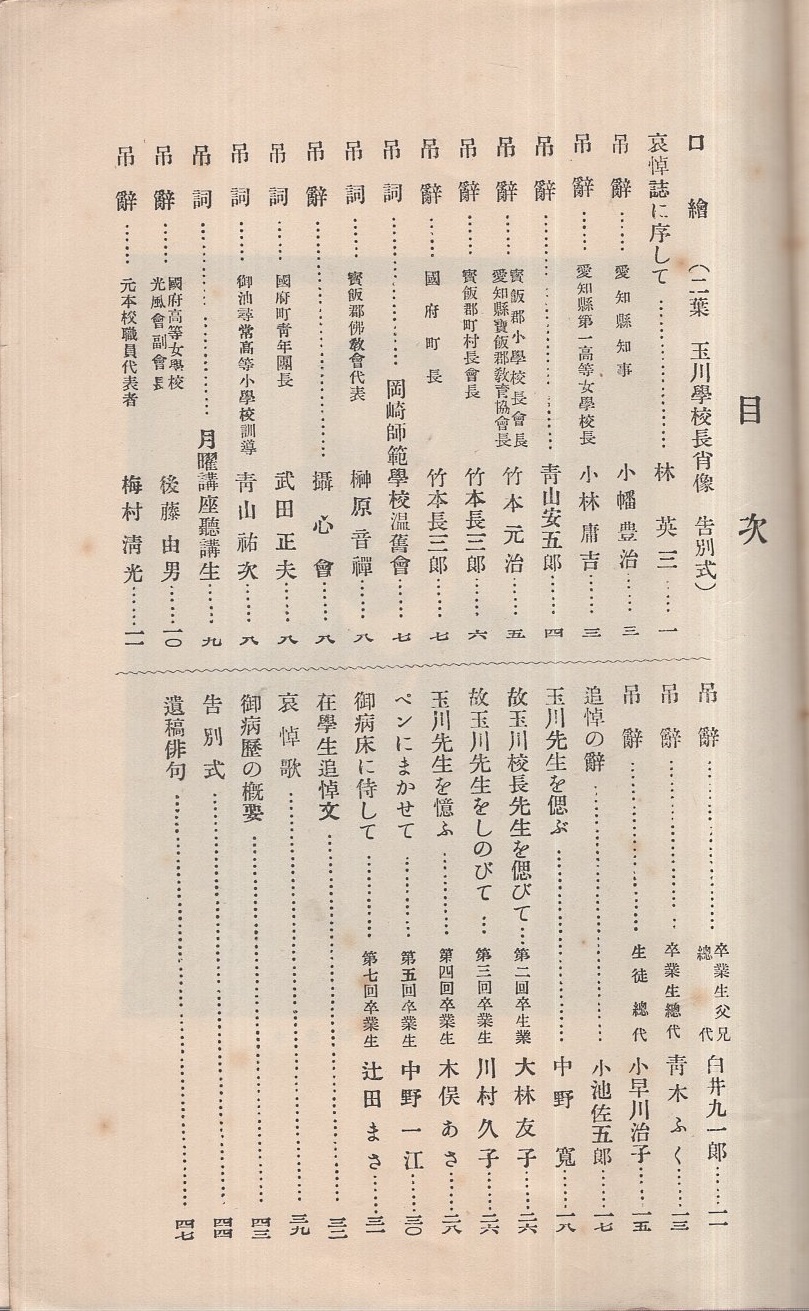 目次
口繪（二葉　玉川學校長肖像　告別式）
哀悼誌に序して……林英三……一
吊辭……愛知縣知事　小幡豊治……三
吊辭……愛知縣第一高等女學校長　小林庸吉……三
吊辭……青山安五郎……四
吊辭……寳飯郡小學校長會長　愛知縣寶飯郡敎育協會長　竹本元治……五
吊辭……寳飯郡町村長會長　竹本長三郎……六
吊辭……國府町長　竹本長三郎……七
吊詞……岡崎師範學校温舊會……七
吊詞……寳飯郡佛敎會代表　榊原音禪……八
吊辭……攝心會……八
吊詞……國府町靑年團長　武田正夫……八
吊詞……御油尋常高等小學校訓導　靑山祐次……八
吊詞……月曜講座聽講生……九
吊辭……國府高等女學校光風會副會長　後藤由男……一〇
吊辭……元本校職員代表者　梅村淸光……一一
吊辭……卒業生父兄總代　白井九一郎……一一
吊辭……卒業生總代　靑木ふく……一三
吊辭……生徒總代　小早川治子……一五
追悼の辭……小池佐五郎……一七
玉川先生を偲ぶ……中野寬……一八
故玉川校長先生を偲びて…第二回卒生業　大林友子……二六
故玉川先生をしのびて…第三回卒業生　川村久子……二六
玉川先生を憶ふ……第四回卒業生　木俣あさ……二八
ペンにまかせて……第五回卒業生　中野一江……三〇
御病床に侍して……第七回卒業生　辻田まさ……三一
在學生追悼文……三二
哀悼歌……三九
御病歷の槪要……四三
告別式……四四
遺稿俳句……四七